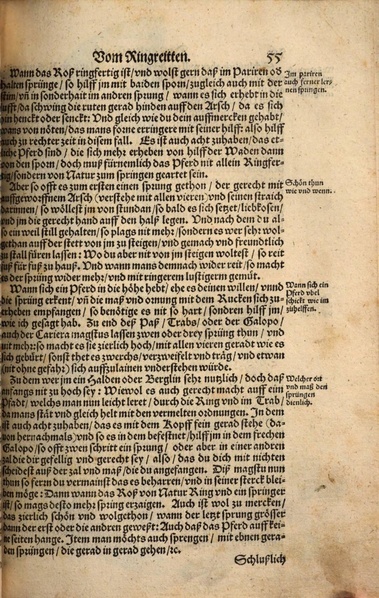 Vom Ringreitten. 55
Wann das Roß ringfertig ist/vnd wolst gern daß im Pariren ob
halten sprünge/so hilff jm mit baiden sporn/zugleich auch mit der
stim̃/vn̄ in sonderhait im andren sprung/wann es sich erhebt in die
lufft/da schwing die ruten gerad hinden auff den Arsch/da es sich
hin henckt oder senckt: Vnd gleich wie du dein auffmercken gehabt/
wans von nöten/das mans forne erringere mit seiner hilff: also hilff
auch zu rechter zeit in disem fall. Es ist auch acht zuhaben/das et-
liche Pferd sind/die sich mehr erheben von hilff der Waden dann
von den sporn/doch muß fürnemlich das Pferd nit allein Ringfer-
tig/sondern von Natur zum springen geartet sein.
Im pariren
auch ferner ler-
nen sprungen.
Aber so offt es zum ersten einen sprung gethon/der gerecht mit
auffgeworffnem Arsch (verstehe mit allen vieren) vnd seinen straich
darinnen/so wöllest jm von stundan/so bald es sich setzet/liebkosen/
vnd jm die gerecht hand auff den halß legen. Vnd nach dem du al-
so ein weil still gehalten/so plags nit mehr/sondern es wer sehr wol-
gethan auff der stett von jm zu steigen/vnd gemach vnd freundtlich
zu stall füren lassen: Wo du aber nit von jm steigen woltest/so reit
fuß für fuß zu hauß. Vnd wann mans dennach wider reit/so macht
es der sprüng wider mehr/vnd mit ringerem lustigerm gemüt.
Schön thun
wie vnd wenn.
Wann sich ein Pferd in die höhe hebt/ehe es deinen willen/vnnd
die sprüng erkent/vn̄ die maß vnd ornung mit dem Rucken sich zu-
erheben empfangen/so benötige es nit so hart/sondren hilff jm/
wie ich gesagt hab. Zu end deß Paß/Trabs/oder der Galopo/
auch der Cariera magstus lassen zwen oder drey sprüng thun/vnd
nit mehr: so macht es sie zierlich hoch/mit allen vieren geradt wie es
sich gebürt/sonst thet es zwerchs/verzweifelt vnd träg/vnd etwan
(mit ohne gefahr) sich auffzulainen vnderstehen würde.
Wann sich ein
Pferd vbel
schickt wie im
zuhelffen.
Zu dem wer jm ein Halden oder Berglin sehr nutzlich/doch daß
anfangs mit zu hoch sey: Wiewol es auch gerecht macht auff ein
Pfadt/welchs man nun leicht lert/durch die Ring vnd im Trab/
da mans stät vnd gleich helt mit den vermelten ordnungen. In dem
ist auch acht zuhaben/das es mit dem Kopff fein gerad stehe (da-
von hernachmals) vnd so es in dem befestnet/hilff jm in dem frechen
Galopo/so offt zwen schritt ein sprung/oder aber in einer andren
zal die dir gefellig vnd gerecht sey/also/das du dich mit nichten
scheidest auß der zal vnd maß/die du angefangen. Diß magstu nun
thun so ferrn du vermainst das es beharren/vnd in seiner sterck blei-
ben möge: Dann wann das Roß von Natur Ring vnd ein springer
ist/so mags desto mehr sprüng erzaigen. Auch ist wol zu mercken/
das zierlich schön vnd wolgethon/wann der letzt sprung grösser
dann der erst oder die andren geweßt: Auch daß das Pferd auff kei-
ne seiten hange. Item man möchts auch sprengen/mit ebnen gera-
den sprüngen/die gerad in gerad gehen/ꝛc.
Welcher ort
vnd maß den
sprüngen
dienlich.
Schlußlich